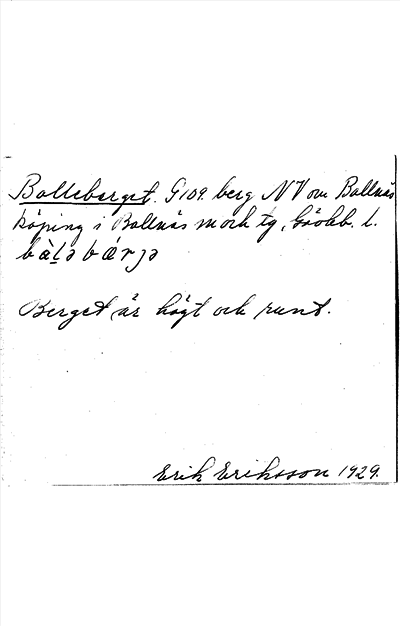 Bolleberget. G109. berg NV om Bollnäs
köping i Bollnäs sn och tg, Gävleb. l.
bàl̠ə bærjə
Berget är högt och runt.
Erik Eriksson 1929.